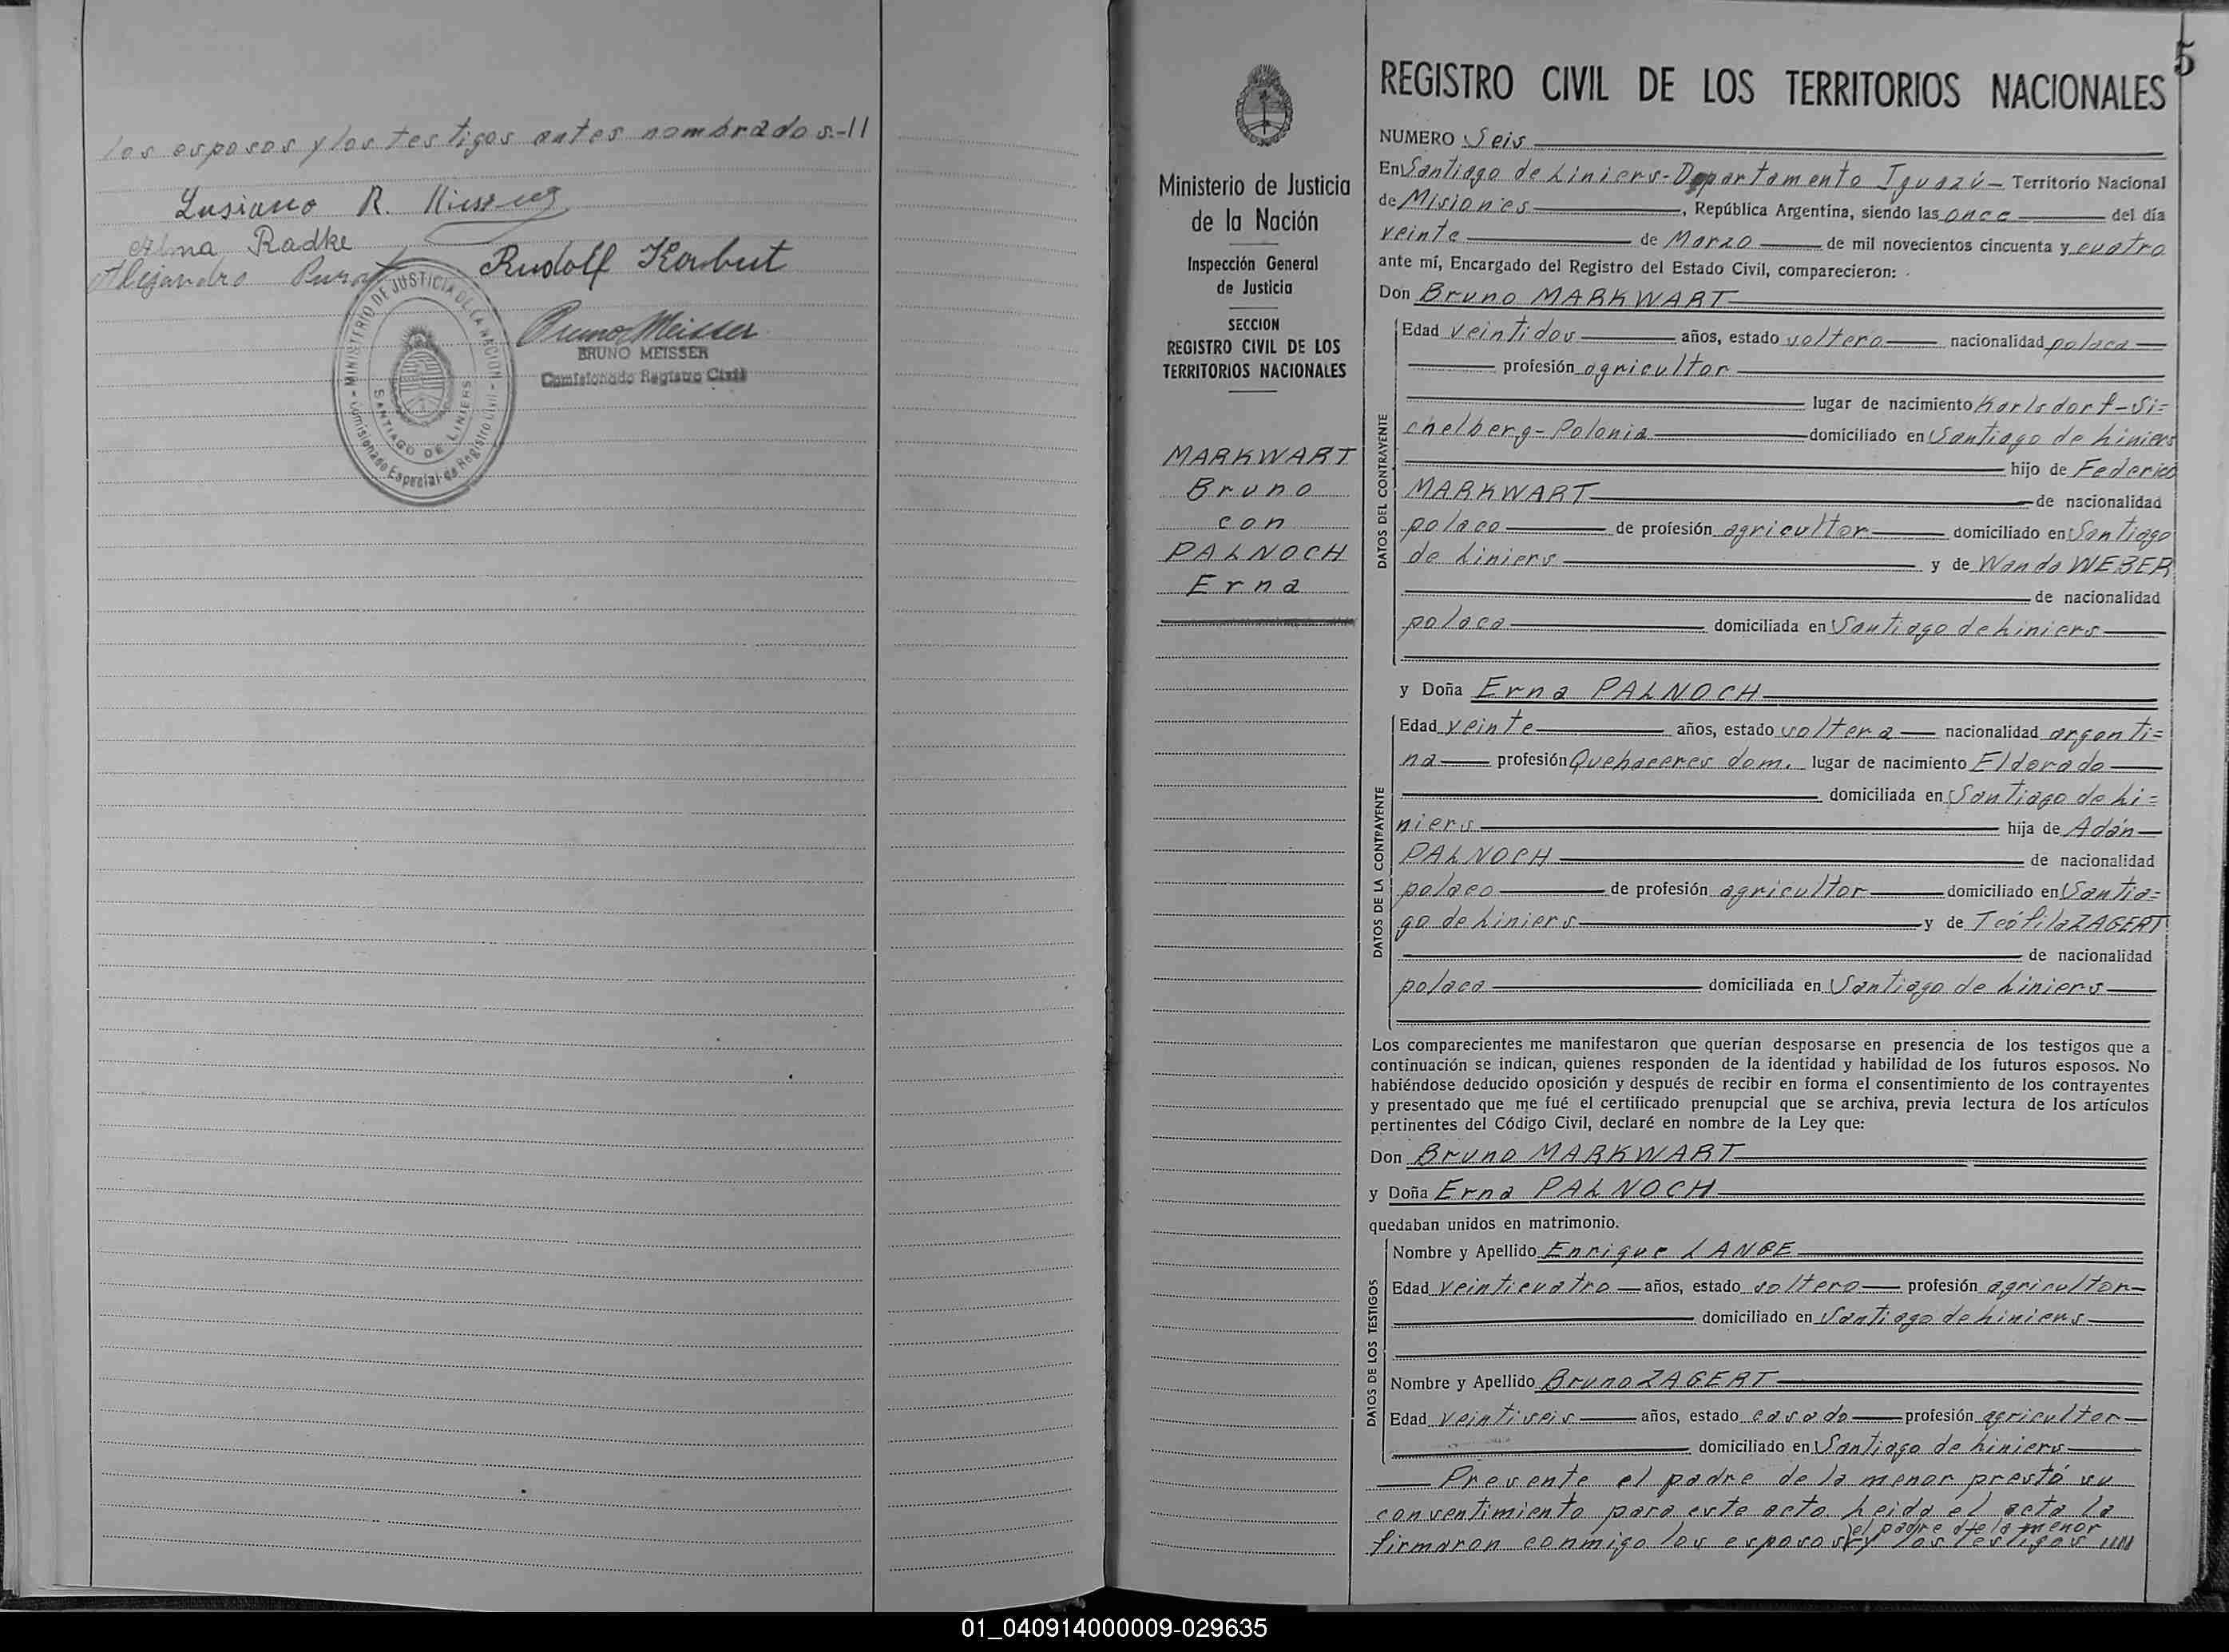 los esposos y los testigos antes nombrados.-//
Lusiano R.
Alma Radke
Rudolf Korbut
Alejandro
MINISTERIO DE JUSTICIA DE LA NACION - Comisionado Especial de Registro Civil -
SANTIAGO DE LINIERS
Bruno Meisser
BRUNO MEISSER
Comisionado Registro Civil
5
Ministerio de Justicia
de la Nación
Inspección General
de Justicia
SECCION
REGISTRO CIVIL DE LOS
TERRITORIOS NACIONALES
MARKWART
Bruno
con
PALNOCH
Erna
REGISTRO CIVIL DE LOS TERRITORIOS NACIONALES
NUMERO Seis
En Santiago de Liniers-Departamento Iguazú- Territorio Nacional
de Misiones, República Argentina, siendo las once del día
veinte de Marzo de mil novecientos cincuenta y cuatro
ante mí, Encargado del Registro del Estado Civil, comparecieron:
Don Bruno MARKWART
DATOS DEL CONTRAYENTE
Edad veintidos años, estado soltero nacionalidad polaca
profesión agricultor
lugar de nacimiento Karlsdorf-Si=
chelberg-Polonia domiciliado en Santiago de Liniers
hijo de Federico
MARKWART de nacionalidad
polaco de profesión agricultor domiciliado en Santiago
de Liniers y de Wanda WEBER
de nacionalidad
polaca domiciliada en Santiago de Liniers
y Doña Erna PALNOCH
DATOS DE LA CONTRAYENTE
Edad veinte años, estado soltera nacionalidad argenti=
na profesión Quehaceres dom. lugar de nacimiento Eldorado
domiciliada en Santiago de Li=
niers hija de Adán
PALNOCH de nacionalidad
polaco de profesión agricultor domiciliado en Santia=
go de Liniers y de Teófila ZAGERT
de nacionalidad
polaca domiciliada en Santiago de Liniers
Los comparecientes me manifestaron que querían desposarse en presencia de los testigos que a
continuación se indican, quienes responden de la identidad y habilidad de los futuros esposos. No
habiéndose deducido oposición y después de recibir en forma el consentimiento de los contrayentes
y presentado que me fué el certificado prenupcial que se archiva, previa lectura de los artículos
pertinentes del Código Civil, declaré en nombre de la Ley que:
Don Bruno MARKWART
y Doña Erna PALNOCH
quedaban unidos en matrimonio.
DATOS DE LOS TESTIGOS
Nombre y Apellido Enrique LANGE
Edad veinticuatro años, estado soltero profesión agricultor
domiciliado en Santiago de Liniers
Nombre y Apellido Bruno ZAGERT
Edad veintiseis años, estado casado profesión agricultor
domiciliado en Santiago de Liniers
Presente el padre de la menor prestó su
consentimiento para este acto. Leida el acta la
el padre de la menor
firmaron conmigo los esposos y los testigos
01_040914000009-029635